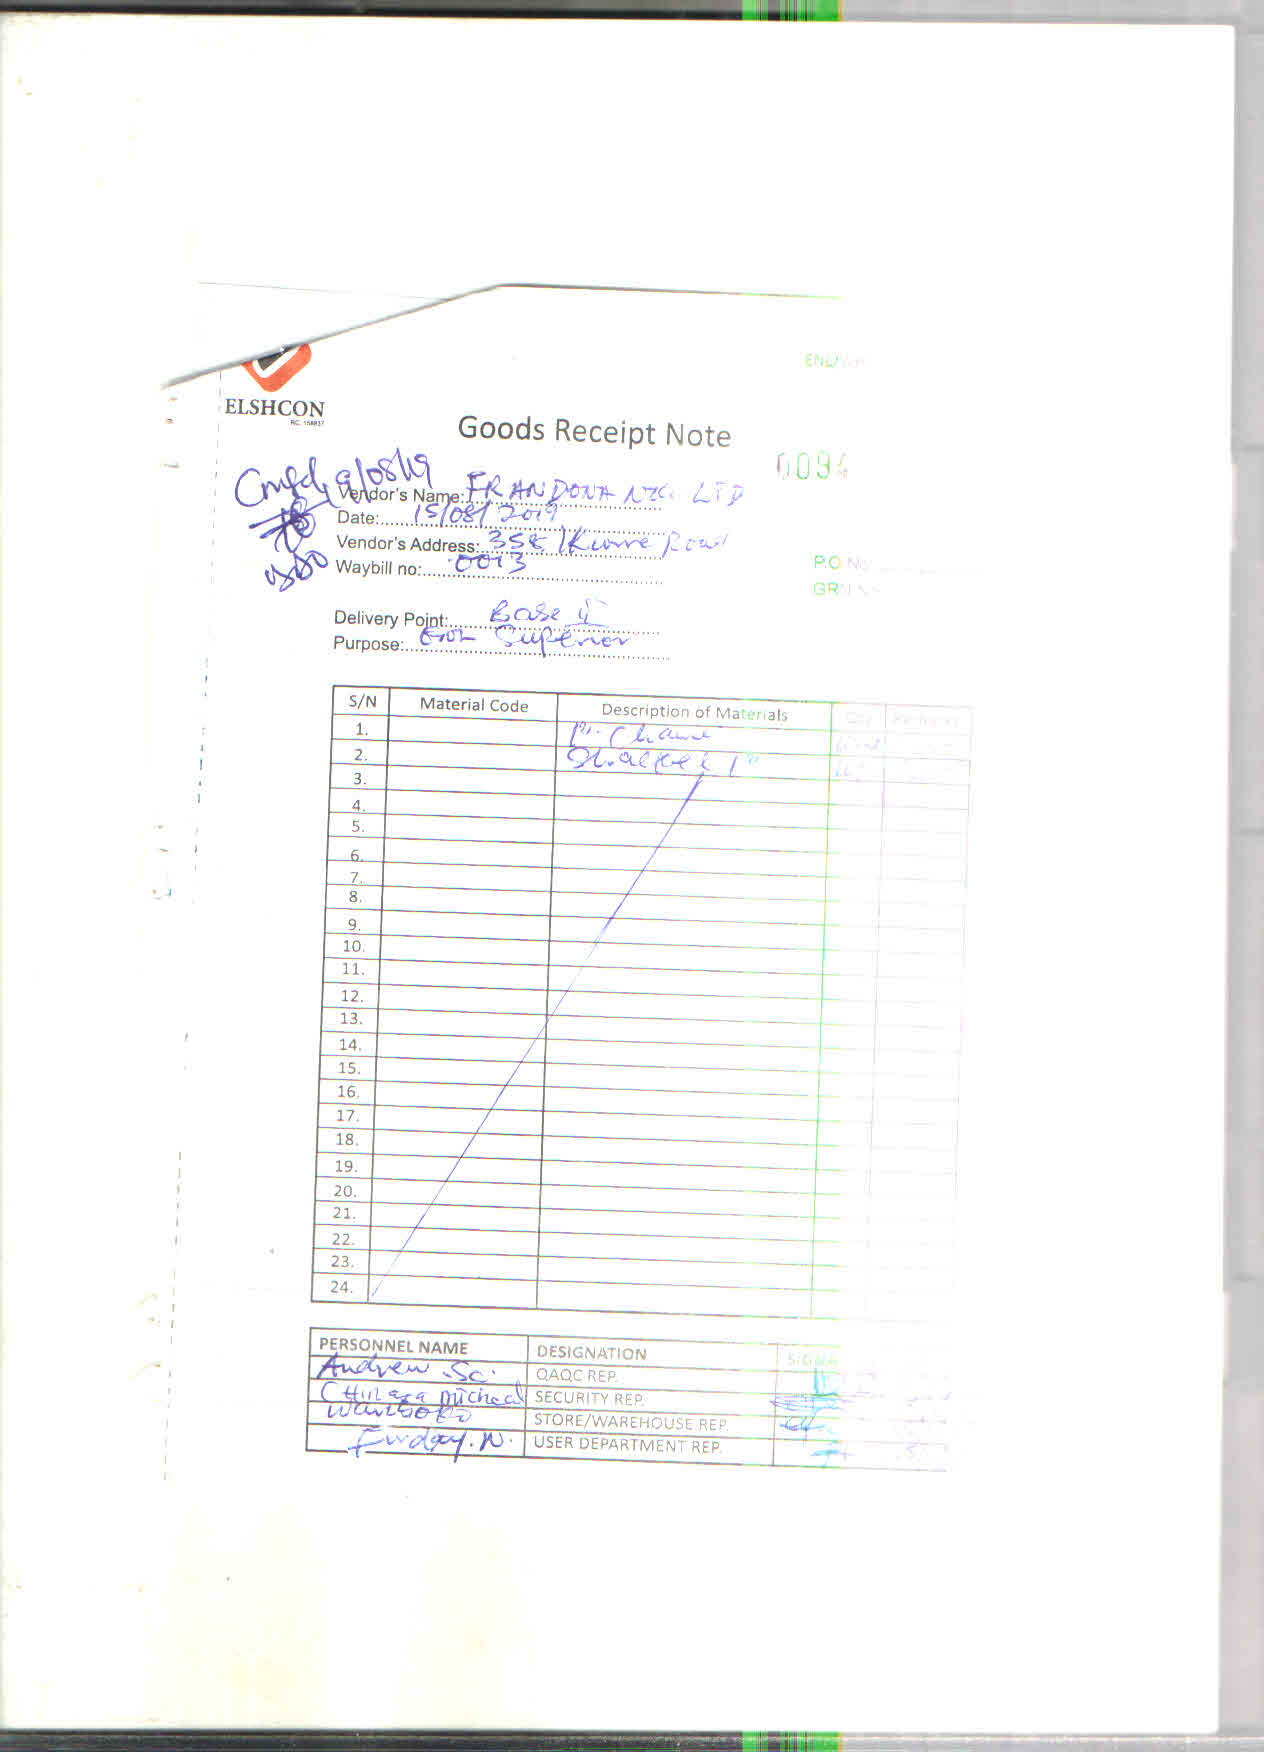 ENL/
ELSHCON
RC. 158837
Goods Receipt Note
0094
9/08/19
Vendor's Name: FRANDONA NIG. LTD
Date: 15/08/2019
Vendor's Address: 358 Ikwerre Road
Waybill no: 0013
P.O No
GRN No
Delivery Point: Base II
Purpose: Superior
S/N Material Code Description of Materials Qty Remarks
1. 1"
2. Shackle 1"
3.
4.
5.
6.
7.
8.
9.
10.
11.
12.
13.
14.
15.
16.
17.
18.
19.
20.
21.
22.
23.
24.
PERSONNEL NAME DESIGNATION SIGNA
Andrew .Sc. QAQC REP.
Michael SECURITY REP.
STORE/WAREHOUSE REP.
Friday. N. USER DEPARTMENT REP.